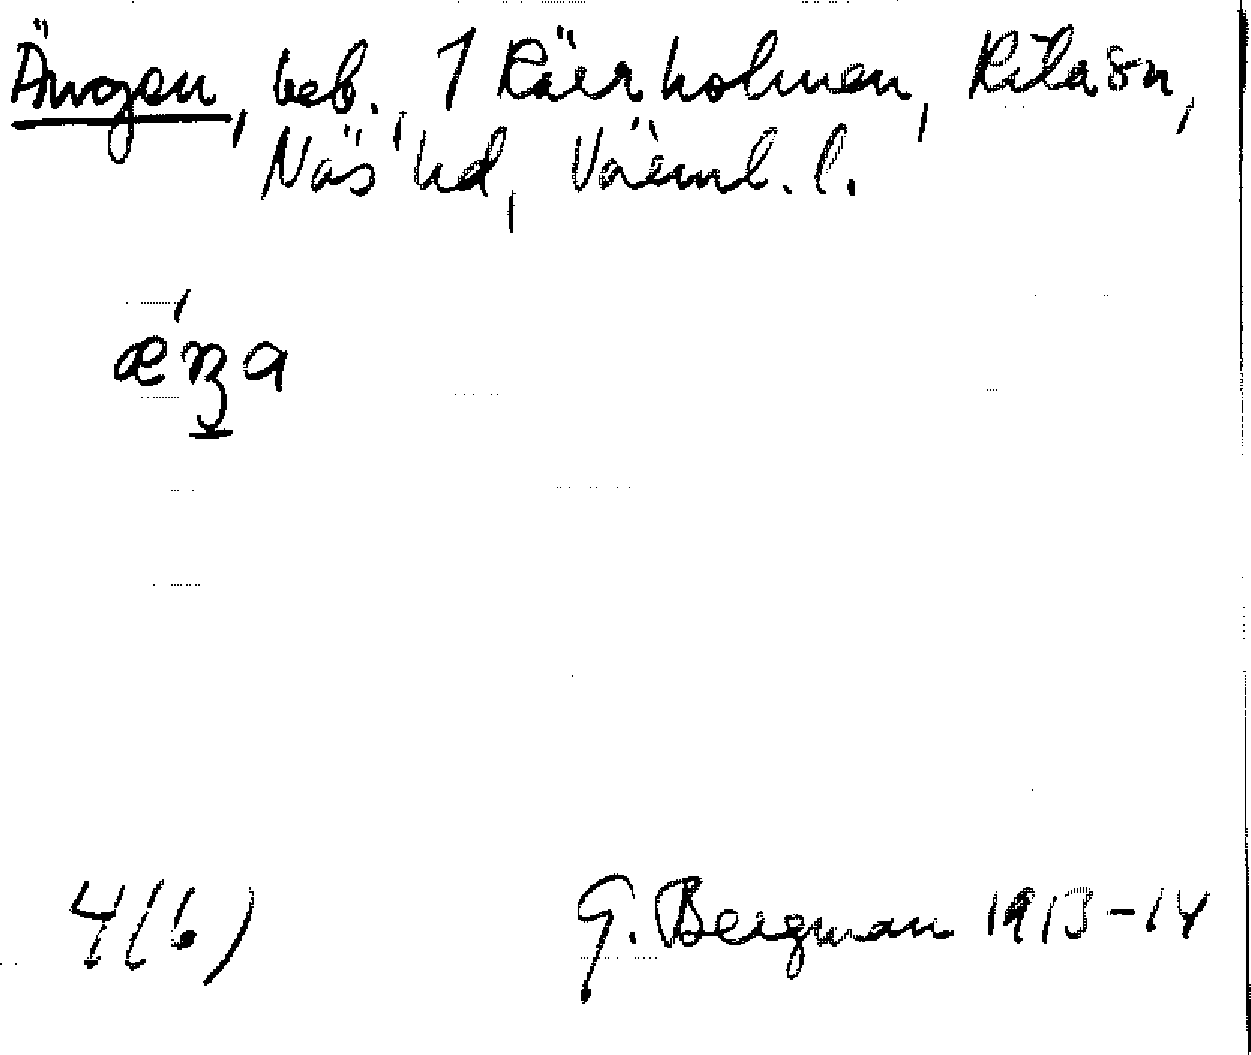 Ängen, beb., 1 Kärrholmen, Kila sn,
Näs hd, Värml. l.
æ'ŋa
4(b)
G. Bergman 1913-14